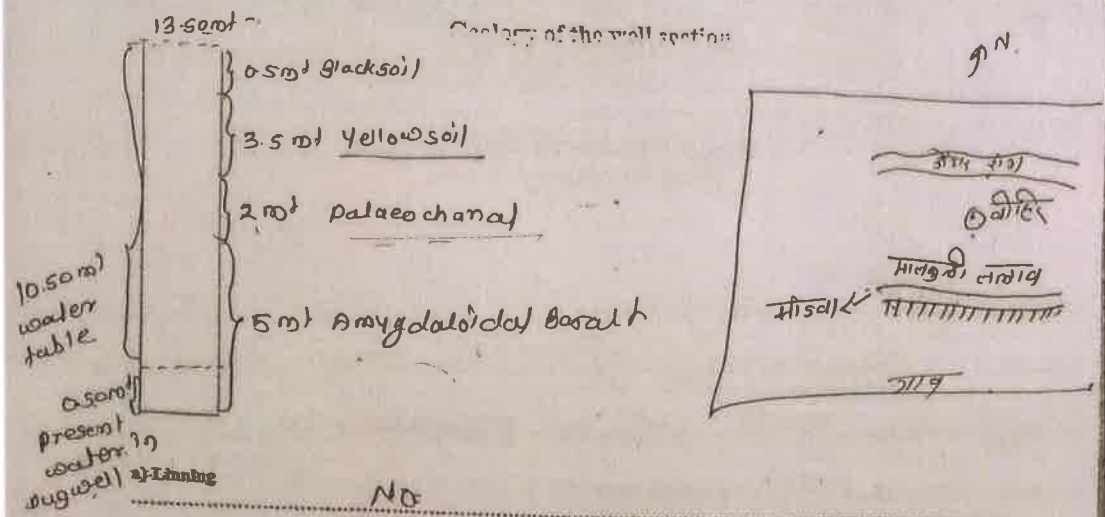 13.50mt
Geology of the well section
N.
0.5mt Blacksoil
3.5 mt Yellowsoil
2 mt palaeochanal
5 mt Amygdaloidal Basalt
10.50mt
water
table
0.50mt
present
water in
dugwell
a)-Linning
NO
विहिर
तलाव
गाव